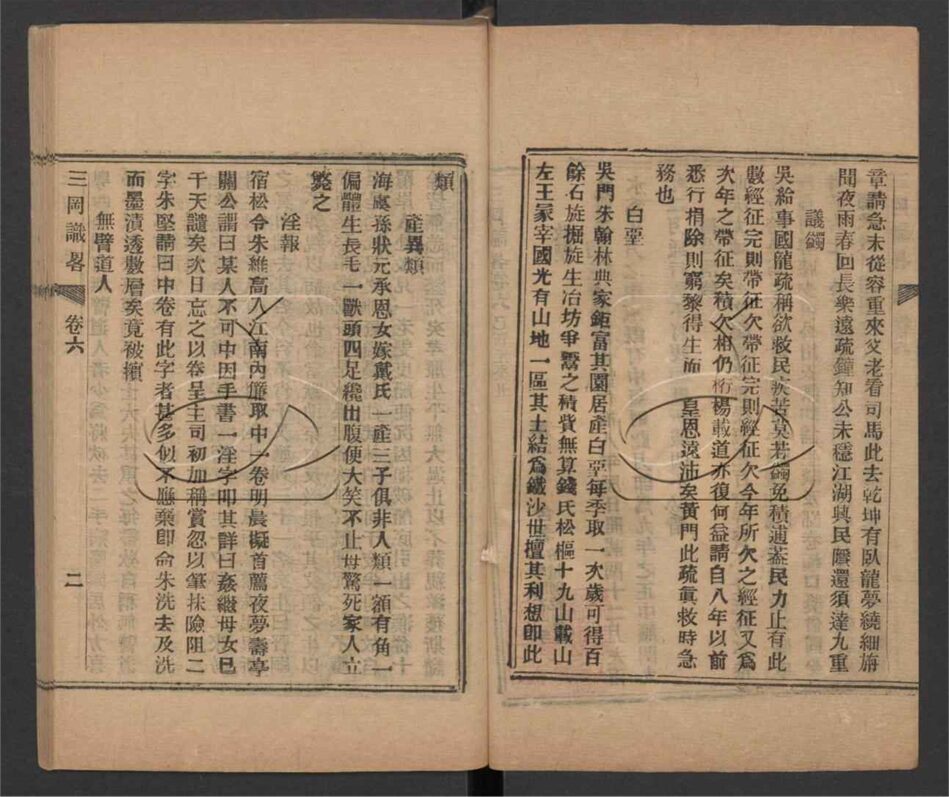 章請急未從容重來父老看司馬此去乾坤有臥龍夢繞細旃
聞夜雨春回長樂遠疏鐘知公未穩江湖興民隱還須達九重
議蠲
吳給事國龍疏稱欲救民疾苦莫若蠲免積逋蓋民力止有此
數經征完則帶征欠帶征完則經征欠今年所欠之經征又爲
次年之帶征矣積欠相仍桁楊載道亦復何益請自八年以前
悉行捐除則窮黎得生而 皇恩遠沛矣黃門此疏眞救時急
務也
白堊
吳門朱翰林典家鉅富其園居產白堊每季取一次歲可得百
餘石旋掘旋生冶坊爭鬻之積貲無算錢氏松樞十九山載山
左王家宰國光有山地一區其土結爲鐵沙世擅其利想卽此
類
產異類
海虞孫狀元承恩女嫁戴氏一產三子俱非人類一額有角一
偏體生長毛一獸頭四足纔出腹便大笑不止母驚死家人立
斃之
淫報
宿松令朱維高入江南內簾取中一卷明晨擬首薦夜夢壽亭
關公謂曰某人不可中因手書一淫字叩其詳曰姦繼母女已
干天譴矣次日忘之以卷呈主司初加稱賞忽以筆抹險阻二
字朱堅請曰中卷有此字者甚多似不應棄卽命朱洗去及洗
而墨漬透數層矣竟被擯
無臂道人
三岡識畧 卷六 二